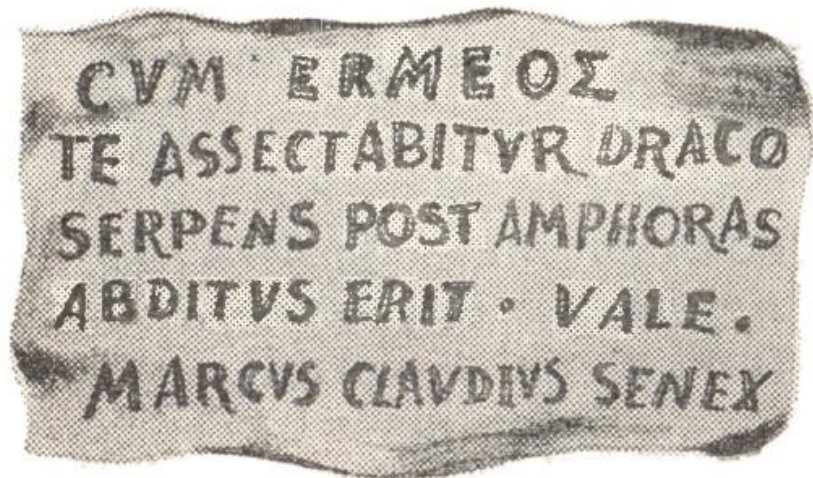 CVM ERMEOΣ
TE ASSECTABITVR DRACO
SERPENS POST AMPHORAS
ABDITVS ERIT · VALE.
MARCVS CLAVDIVS SENEX